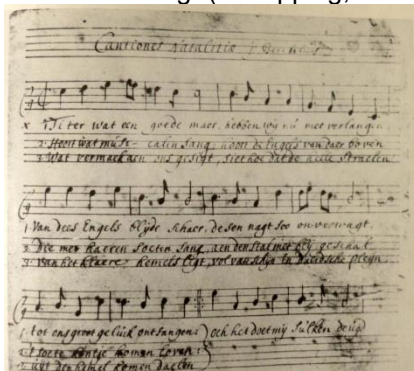 Cantiones Natalitiæ
1 Titer wat een goede maer, hebben wij nú met verlangen
2 Hoort wat músi- calen sang, hoort de Engels van daer boven
3 Wat vermaek aen ons gesigt, siet hoe dat de helle straelen
1 Van dees Engels blijde schaer, deson nagt soo onverwagt,
2 Die met haeren soeten sang, aen den stal met blij geschal
3 van het klaere hemels ligt, vol van schijn in Davidsche pleyn
1 tot ons groot gelúck ontfangen: och het doet mij súlken deúgd
2 t soete kintje komen loven:
3 uijt den hemel komen daelen